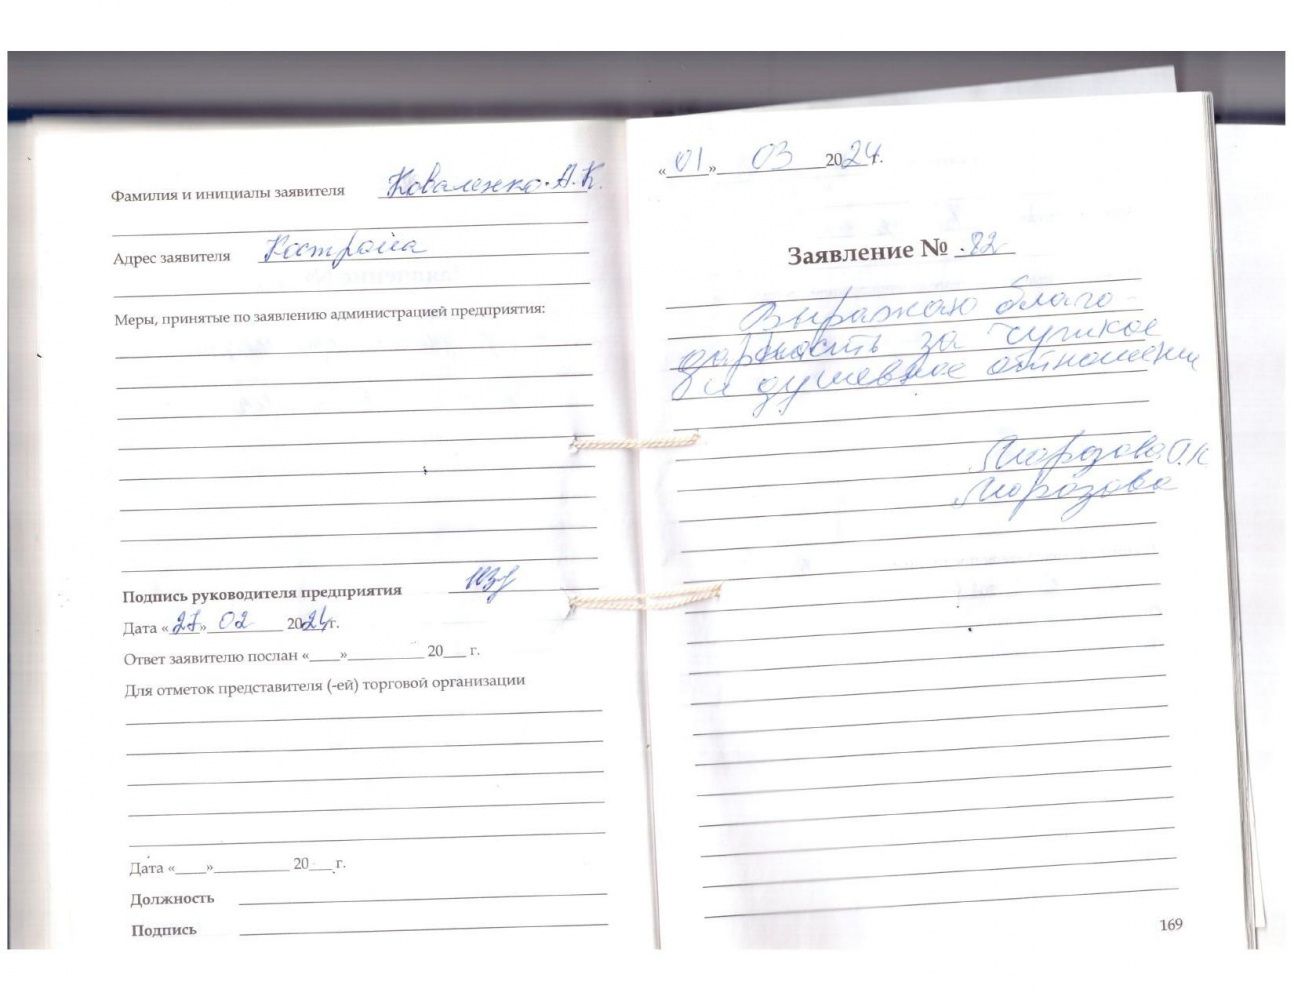 Фамилия и инициалы заявителя Коваленко А.К.
Адрес заявителя Кострома
Меры, принятые по заявлению администрацией предприятия:
Подпись руководителя предприятия
Дата «27» 02 2024 г.
Ответ заявителю послан «____»__________ 20___ г.
Для отметок представителя (-ей) торговой организации
Дата «____»__________ 20___ г.
Должность
Подпись
«01» 03 2024 г.
Заявление № 82
Выражаю благо-
дарность за чуткое
и душевное отношение
Морозова
Морозова
169